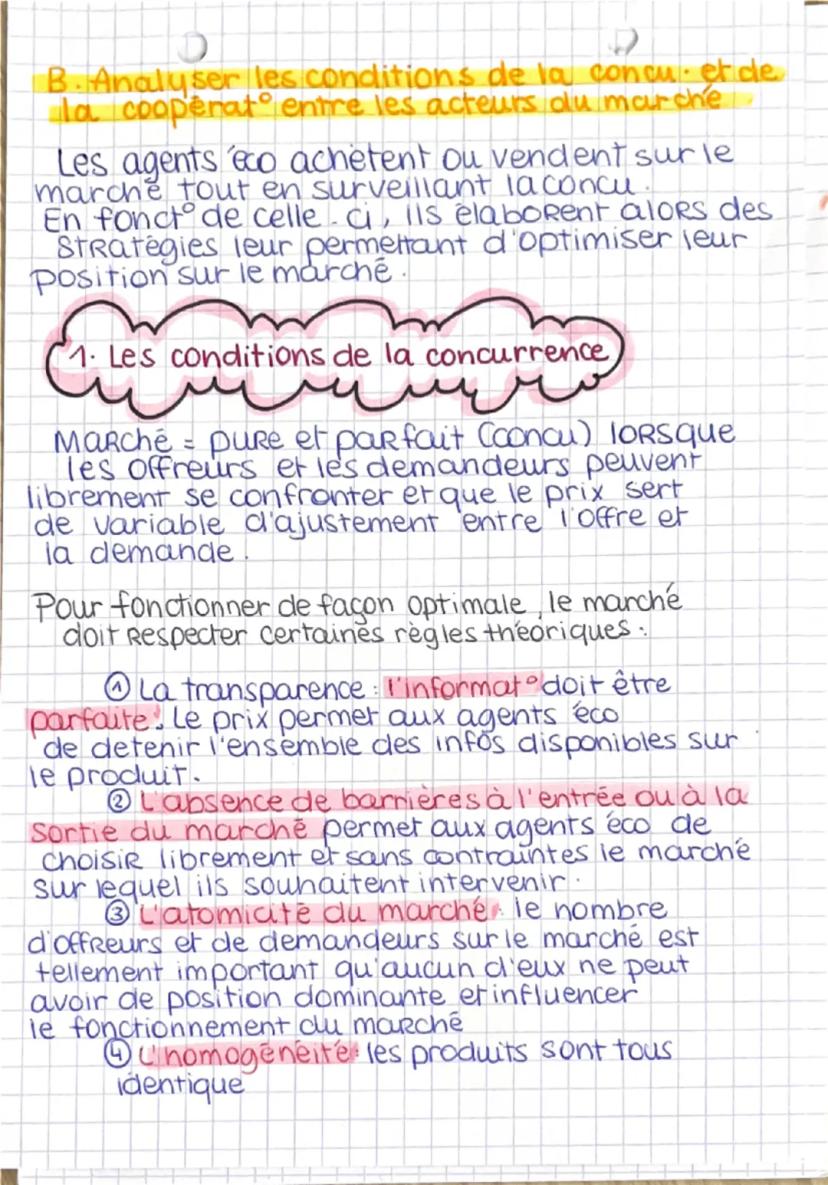 B. Analyser les conditions de la concu. et de
la coopérat° entre les acteurs du marché
Les agents éco achètent ou vendent sur le
marché tout en surveillant la concu.
En fonct° de celle-ci, ils élaborent alors des
stratégies leur permettant d'optimiser leur
position sur le marché.
1. Les conditions de la concurrence
Marché = pure et parfait (concu) lorsque
les offreurs et les demandeurs peuvent
librement se confronter et que le prix sert
de variable d'ajustement entre l'offre et
la demande.
Pour fonctionner de façon optimale, le marché
doit respecter certaines règles théoriques :
① La transparence : l'informat° doit être
parfaite. Le prix permet aux agents éco
de detenir l'ensemble des infos disponibles sur
le produit.
② L'absence de barrières à l'entrée ou à la
sortie du marché permet aux agents éco de
choisir librement et sans contraintes le marché
sur lequel ils souhaitent intervenir.
③ L'atomicité du marché : le nombre
d'offreurs et de demandeurs sur le marché est
tellement important qu'aucun d'eux ne peut
avoir de position dominante et influencer
le fonctionnement du marché
④ L'homogénéité : les produits sont tous
identique